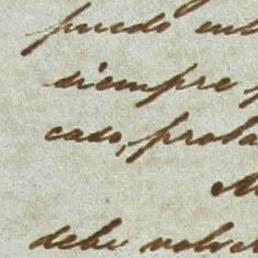 puedo ent
siempre p
caso, proba
M
debe volve